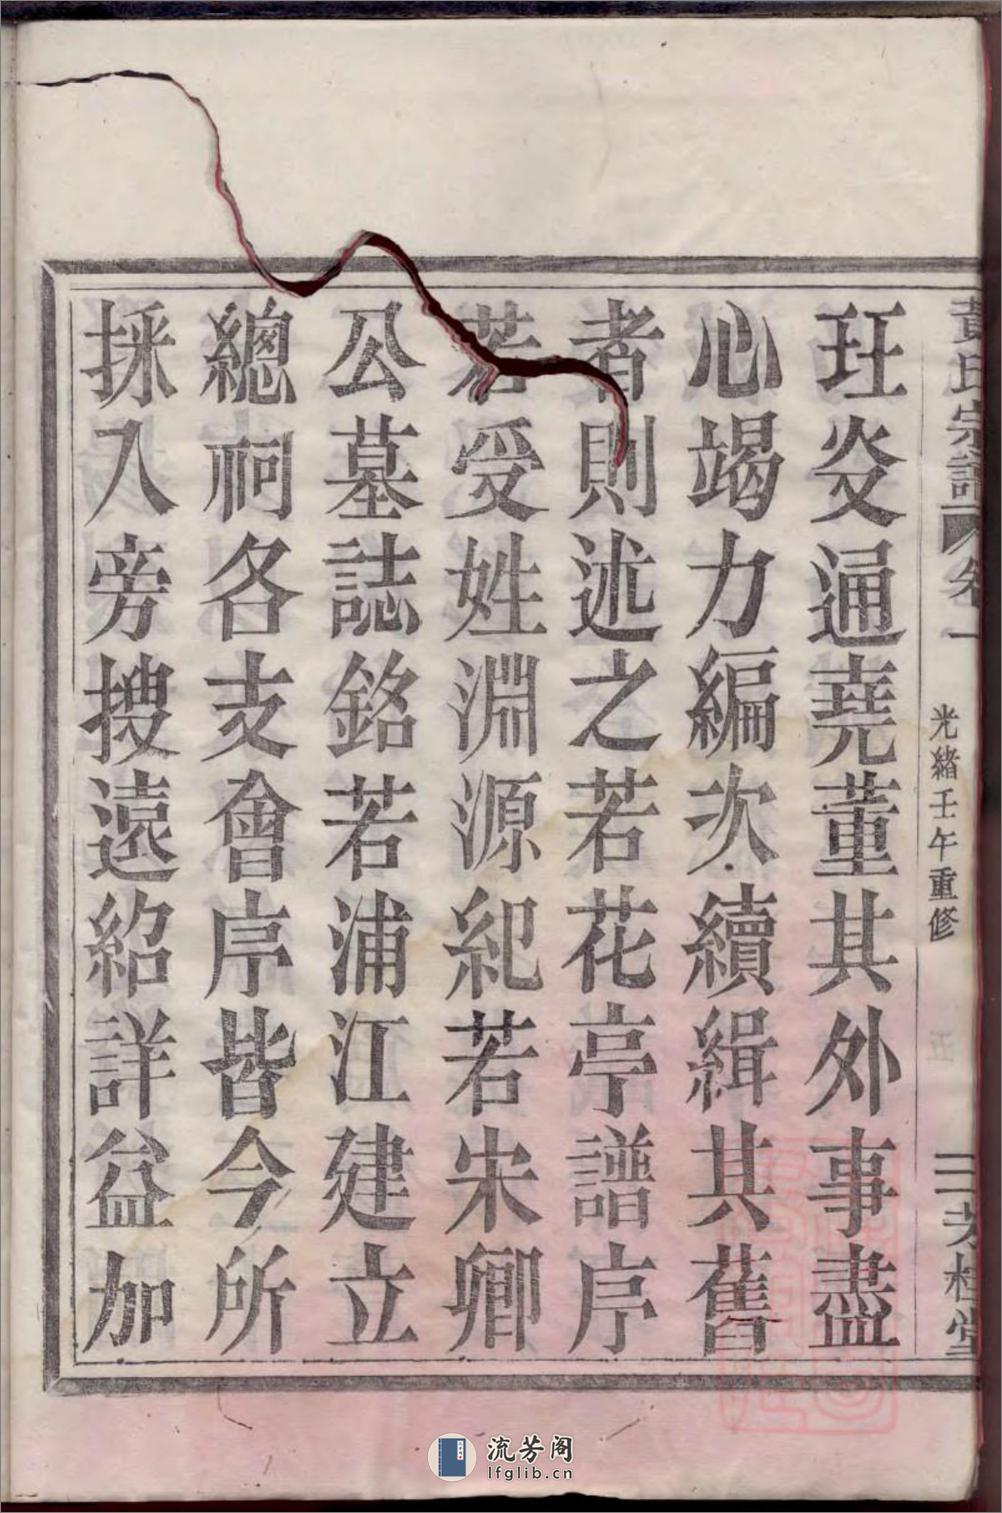 黃氏宗譜
卷一
光緒壬午重修
桂堂
玨炎通堯董其外事盡
心竭力編次續緝其舊
者則述之若花亭譜序
若受姓淵源紀若宋卿
公墓誌銘若浦江建立
總祠各支會序皆今所
採入旁搜遠紹詳益加
流芳阁
lfglib.cn